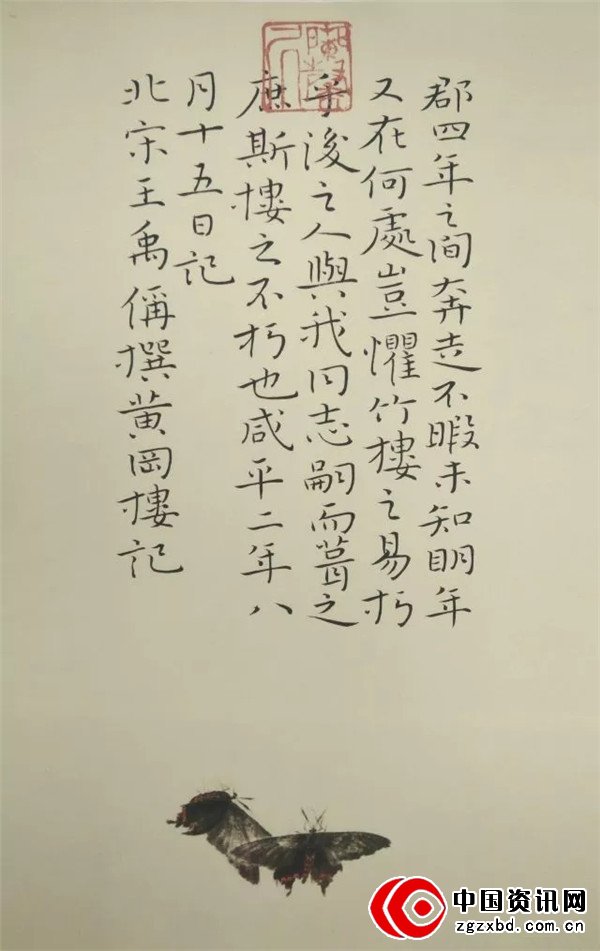 郡四年之間奔走不暇未知明年
又在何處豈懼竹樓之易朽
乎後之人與我同志嗣而葺之
庶斯樓之不朽也咸平二年八
月十五日記
北宋王禹偁撰黄岡樓記
中国资讯网
zgzxbd.com.cn